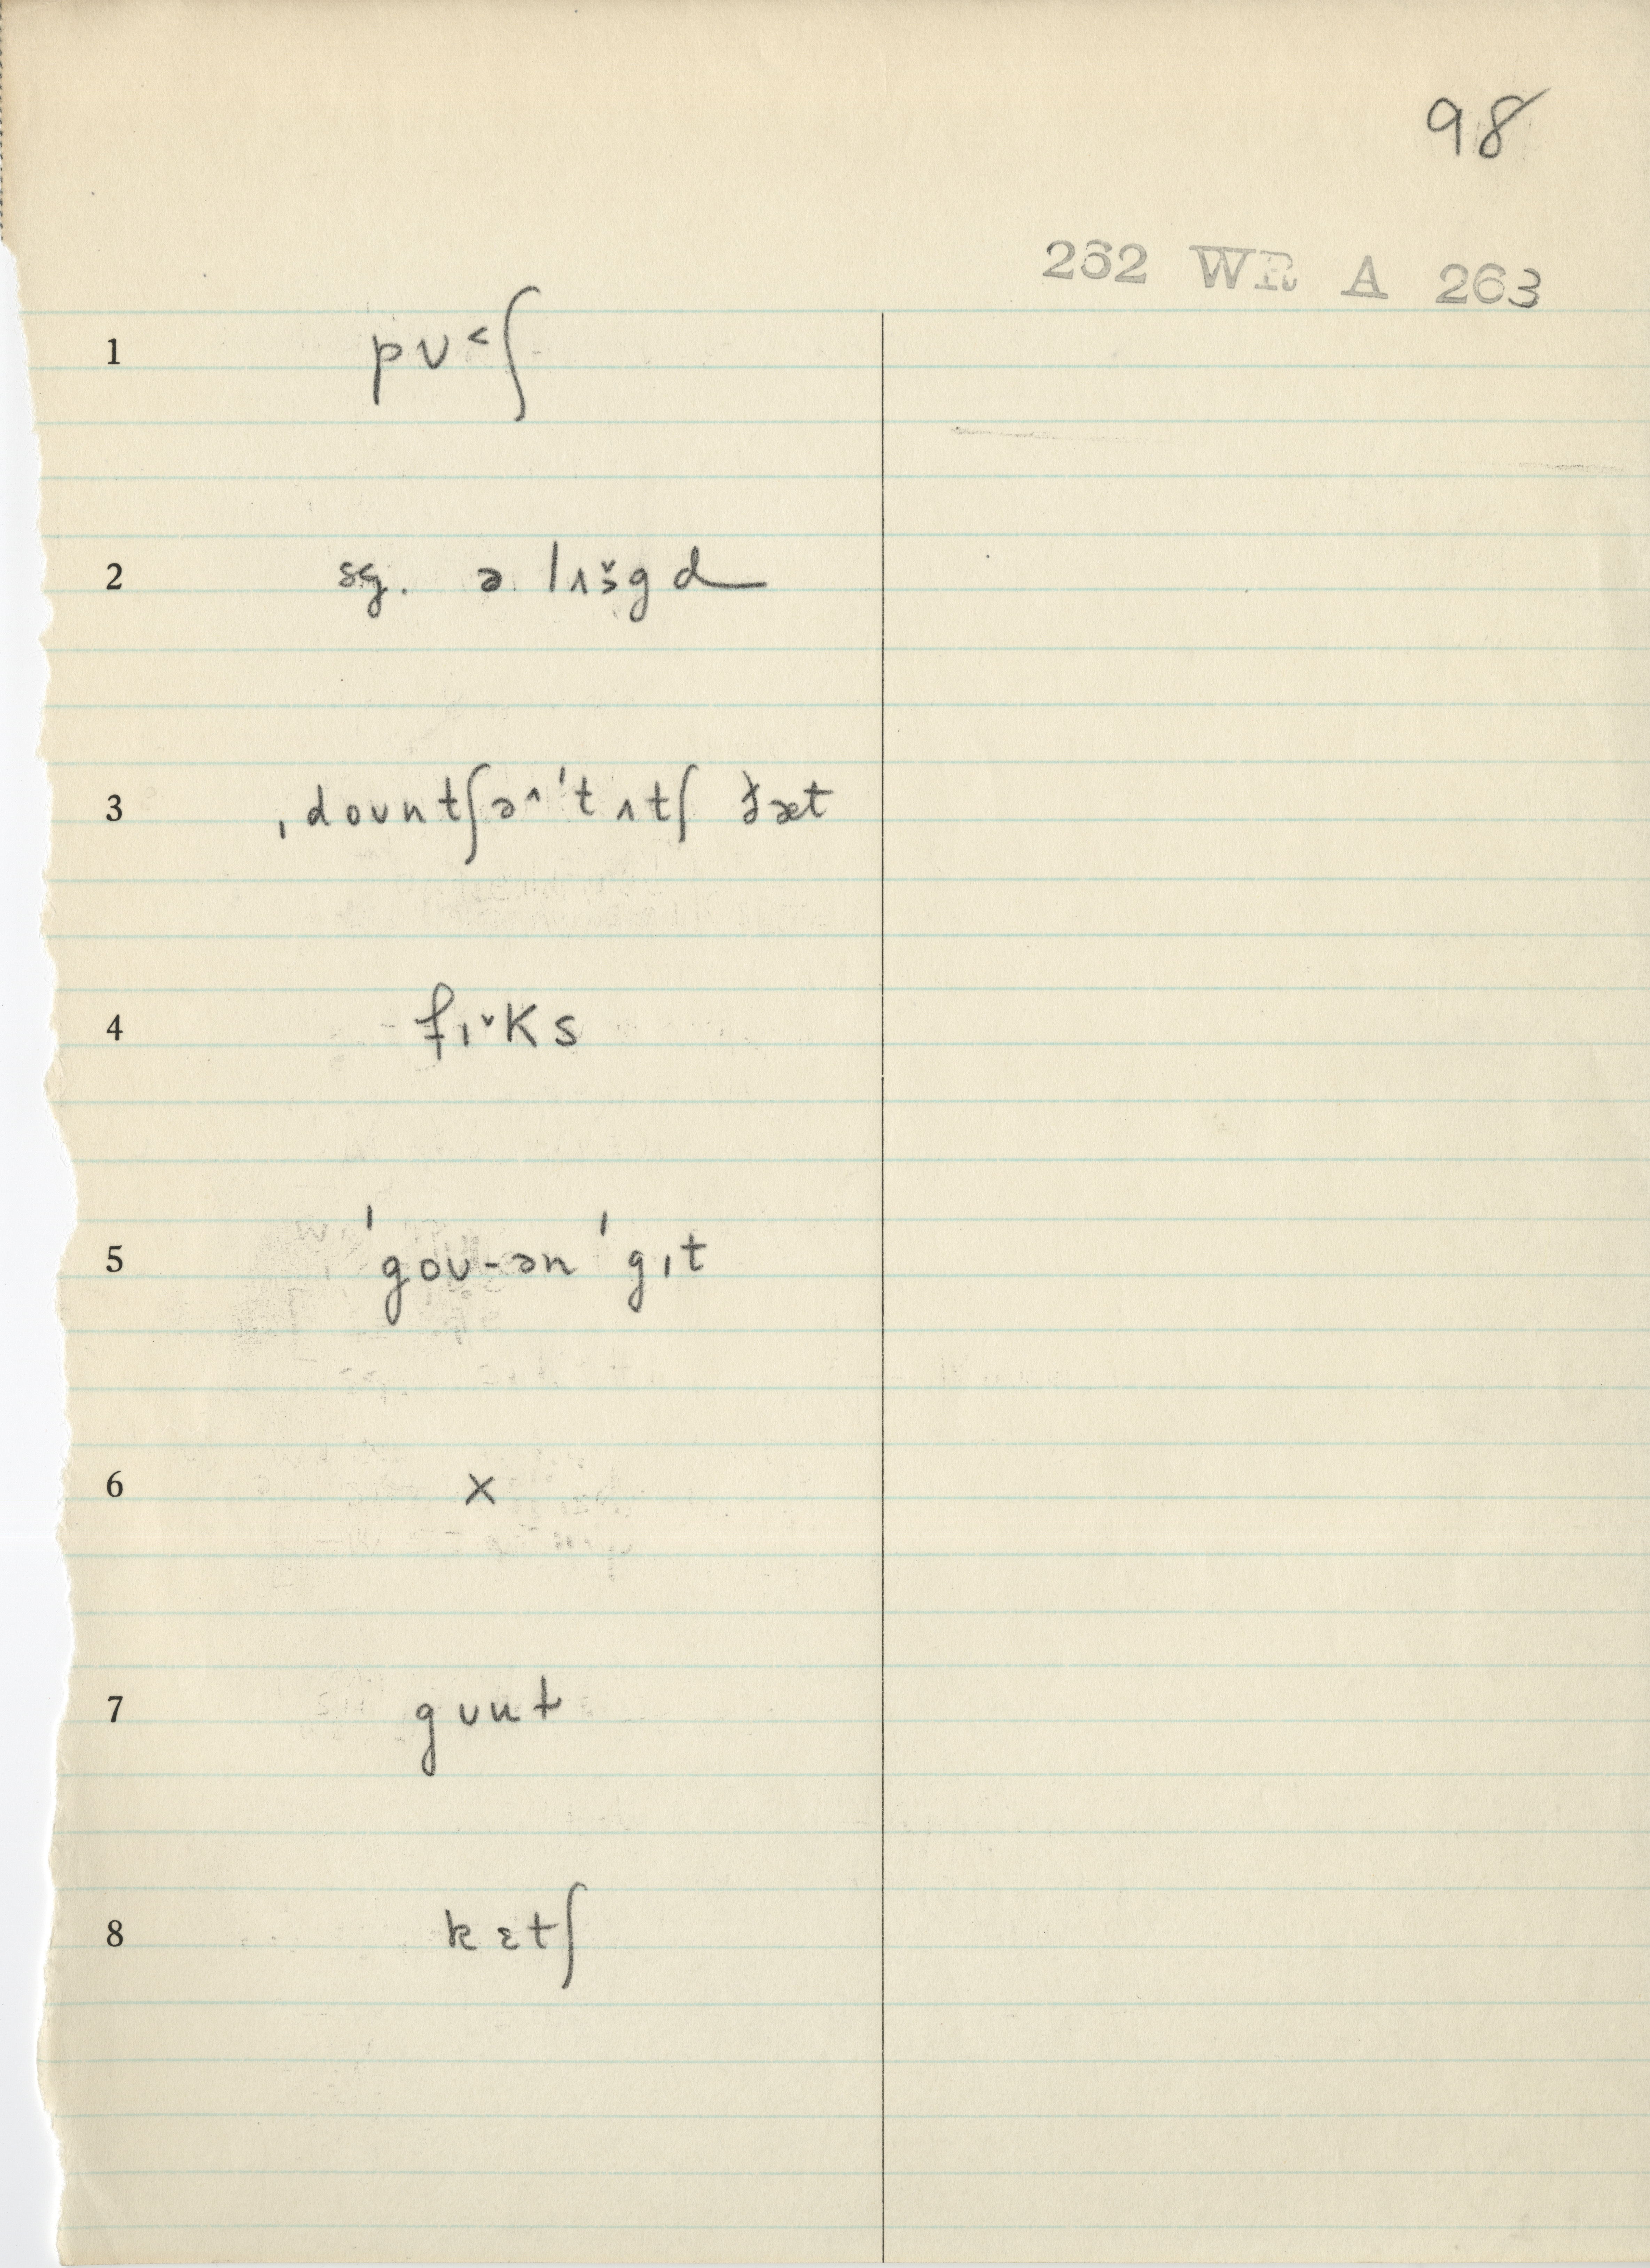 98
262 WR A 263
1 pʊ˂ʃ
2 sg. ə lɪɜ̌gd
3 ˌdoʊntʃə^ˈtʌtʃ ðæt
4 fɪˇks
5 ˈgoʊ-ənˈgɪt
6 x
7 gʊnt
8 kɛtʃ